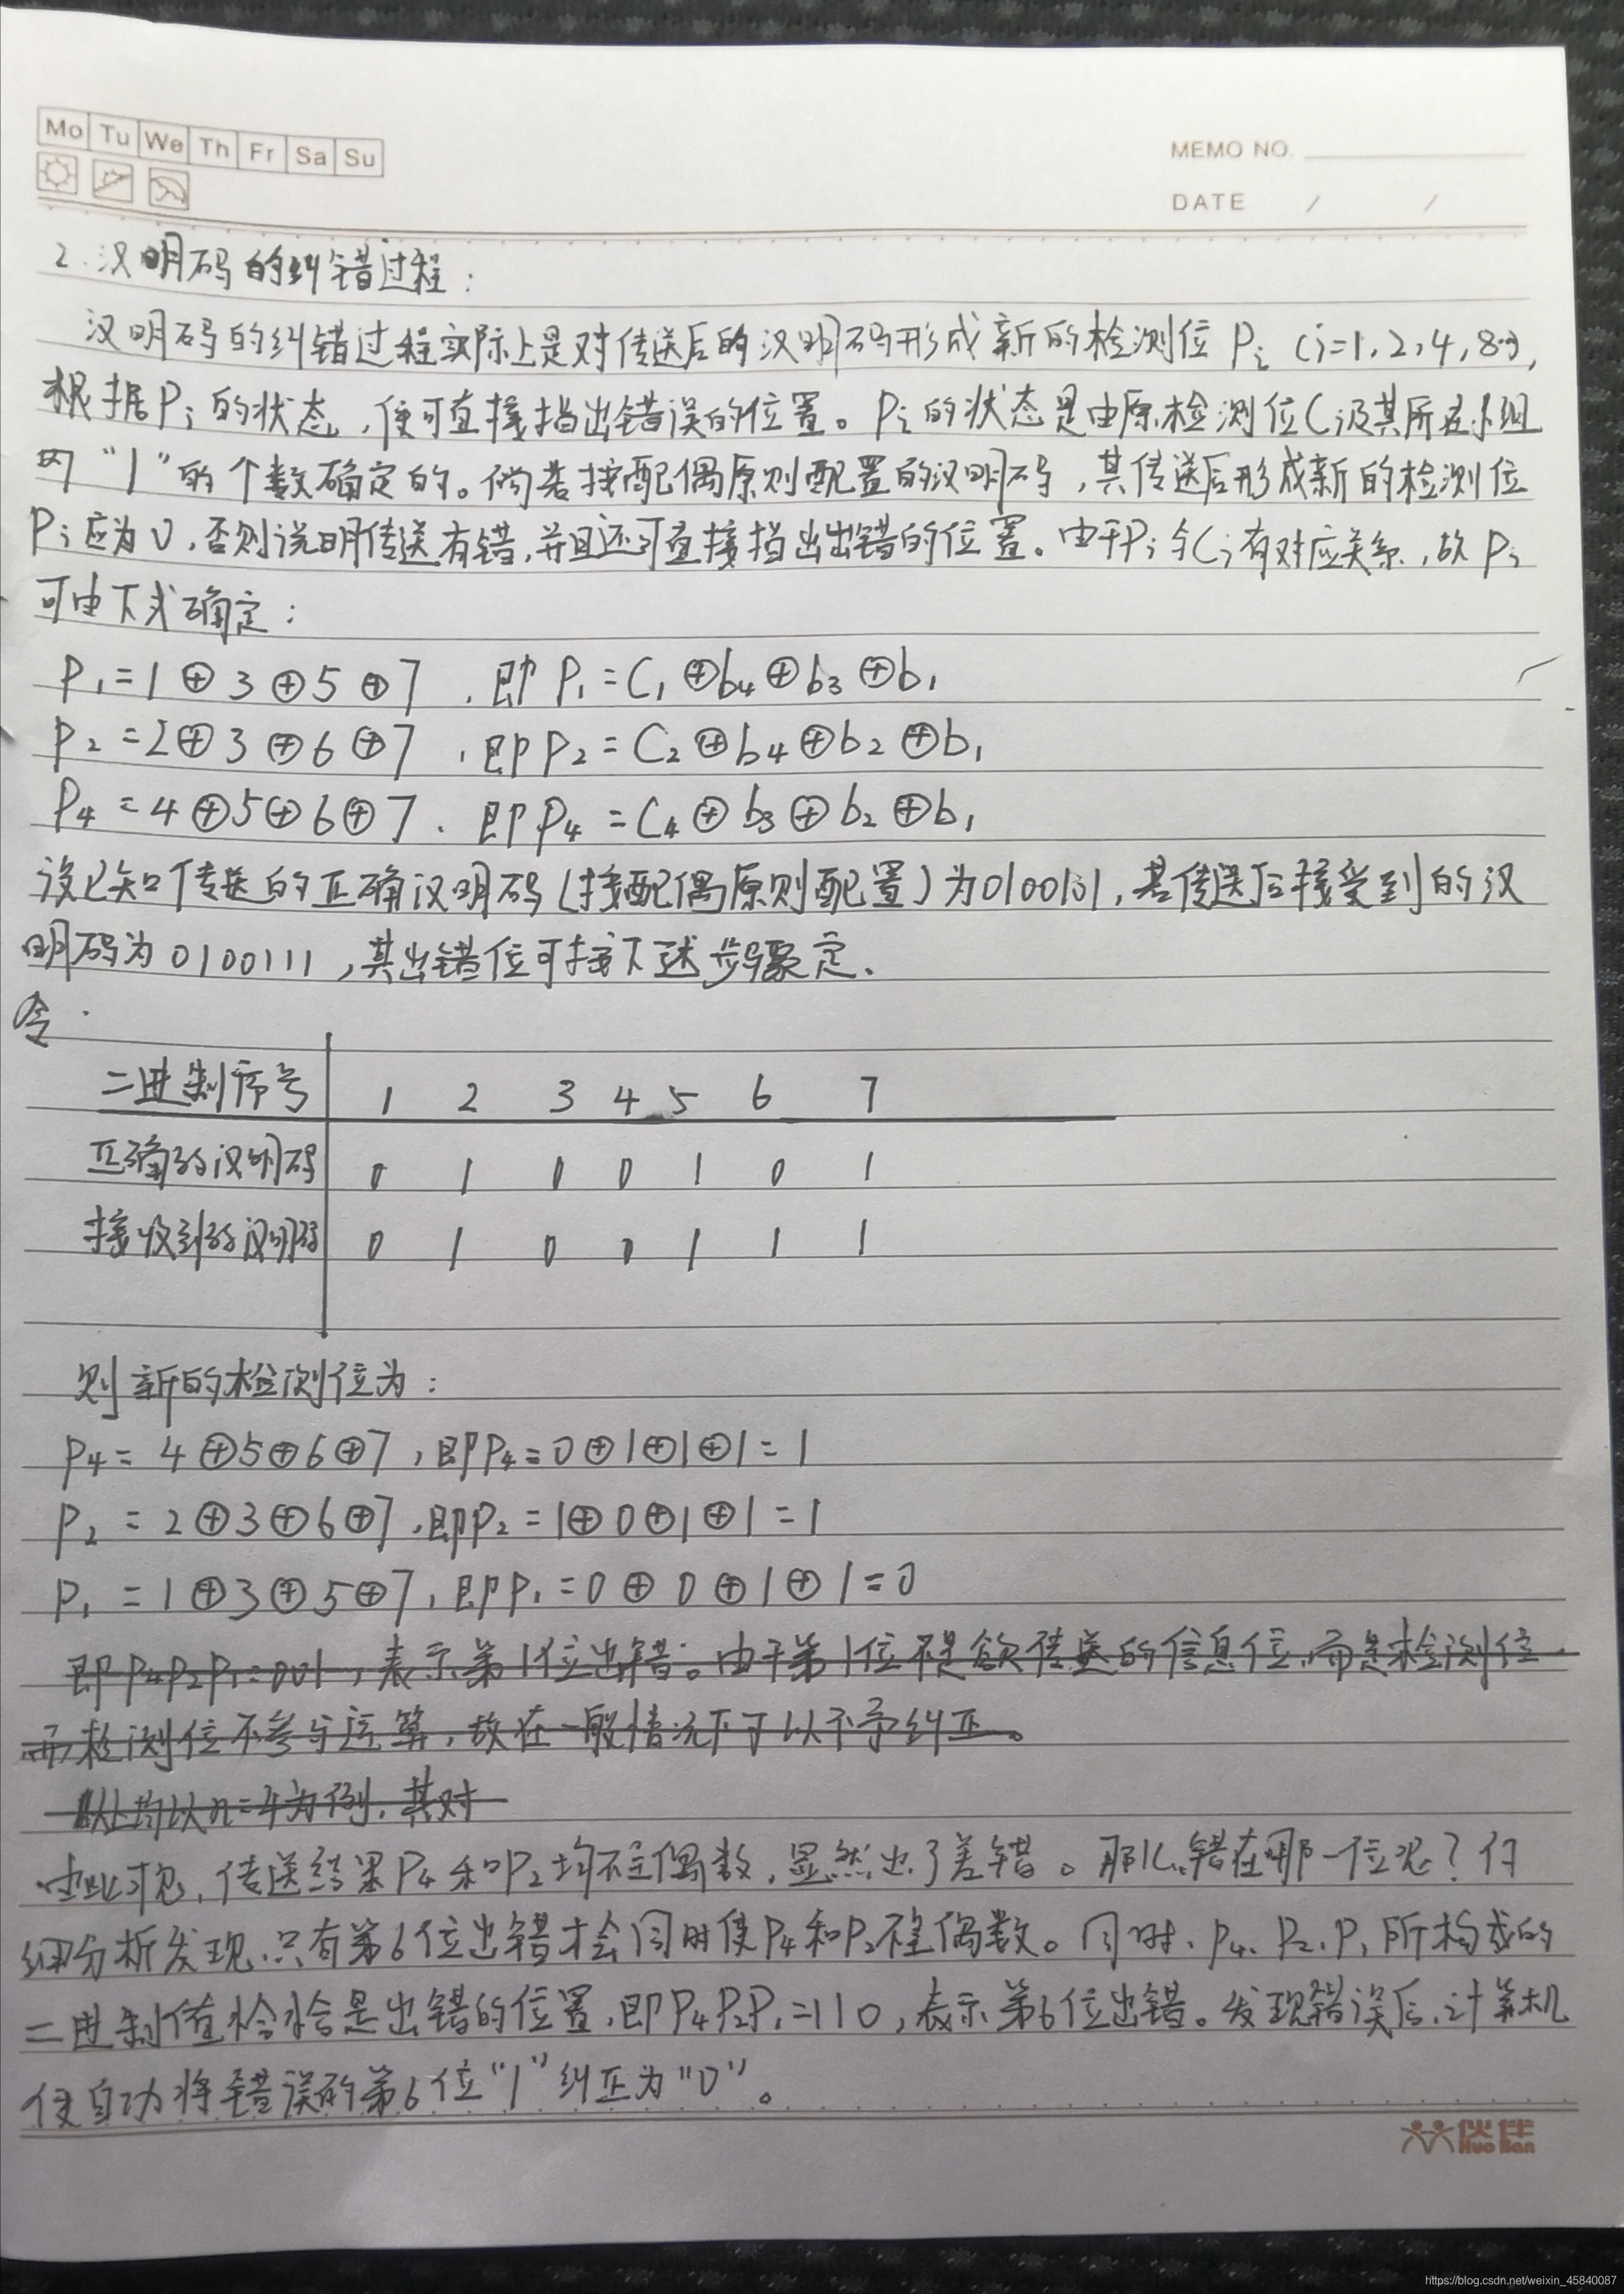 Mo Tu We Th Fr Sa Su
MEMO NO.
DATE / /
2.汉明码的纠错过程:
汉明码的纠错过程实际上是对传送后的汉明码形成新的检测位 Pi (i=1,2,4,8…),
根据Pi的状态,便可直接指出错误的位置。Pi的状态是由原检测位Ci及其所在小组
内“1”的个数确定的。倘若按配偶原则配置的汉明码,其传送后形成新的检测位
Pi应为0,否则说明传送有错,并且还可直接指出出错的位置。由于Pi与Ci有对应关系,故Pi
可由下式确定:
P₁=1⊕3⊕5⊕7,即P₁=C₁⊕b₄⊕b₃⊕b₁
P₂=2⊕3⊕6⊕7,即P₂=C₂⊕b₄⊕b₂⊕b₁
P₄=4⊕5⊕6⊕7,即P₄=C₄⊕b₃⊕b₂⊕b₁
设已知传送的正确汉明码(按配偶原则配置)为0100101,若传送后接受到的汉
明码为0100111,其出错位可按下述步骤定.
令.
二进制序号 1 2 3 4 5 6 7
正确的汉明码 0 1 0 0 1 0 1
接收到的汉明码 0 1 0 0 1 1 1
则新的检测位为:
P₄=4⊕5⊕6⊕7,即P₄=0⊕1⊕1⊕1=1
P₂=2⊕3⊕6⊕7,即P₂=1⊕0⊕1⊕1=1
P₁=1⊕3⊕5⊕7,即P₁=0⊕0⊕1⊕1=0
即P₄P₂P₁=001,表示第1位出错。由于第1位不是欲传送的信息位,而是检测位
而检测位不参与运算,故在一般情况下可以不予纠正。
以上均以n=4为例,其对
由此可见,传送结果P₄和P₂均不呈偶数,显然出了差错。那么,错在哪一位呢?仔
细分析发现,只有第6位出错才会同时使P₄和P₂不呈偶数。同时、P₄、P₂、P₁所构成的
二进制值恰恰是出错的位置,即P₄P₂P₁=110,表示第6位出错。发现错误后,计算机
便自动将错误的第6位“1”纠正为“0”。
伙伴
Huo Ban
https://blog.csdn.net/weixin_45840087